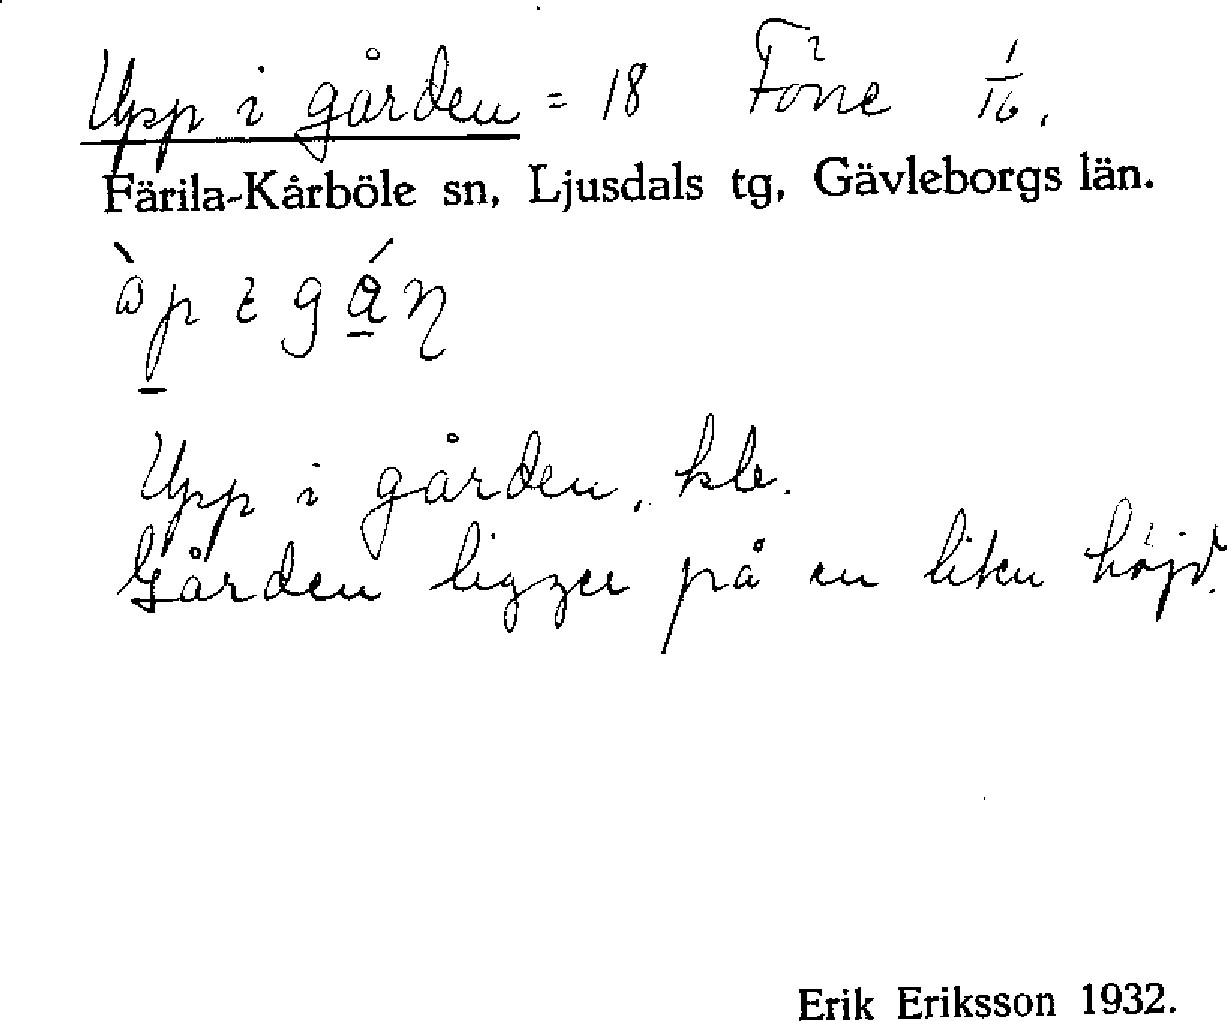 Upp i gården = 18 Föne 1/16.
Färila-Kårböle sn, Ljusdals tg, Gävleborgs län.
Upp i gården, kle.
Gården ligger på en liten höjd.
Erik Eriksson 1932.